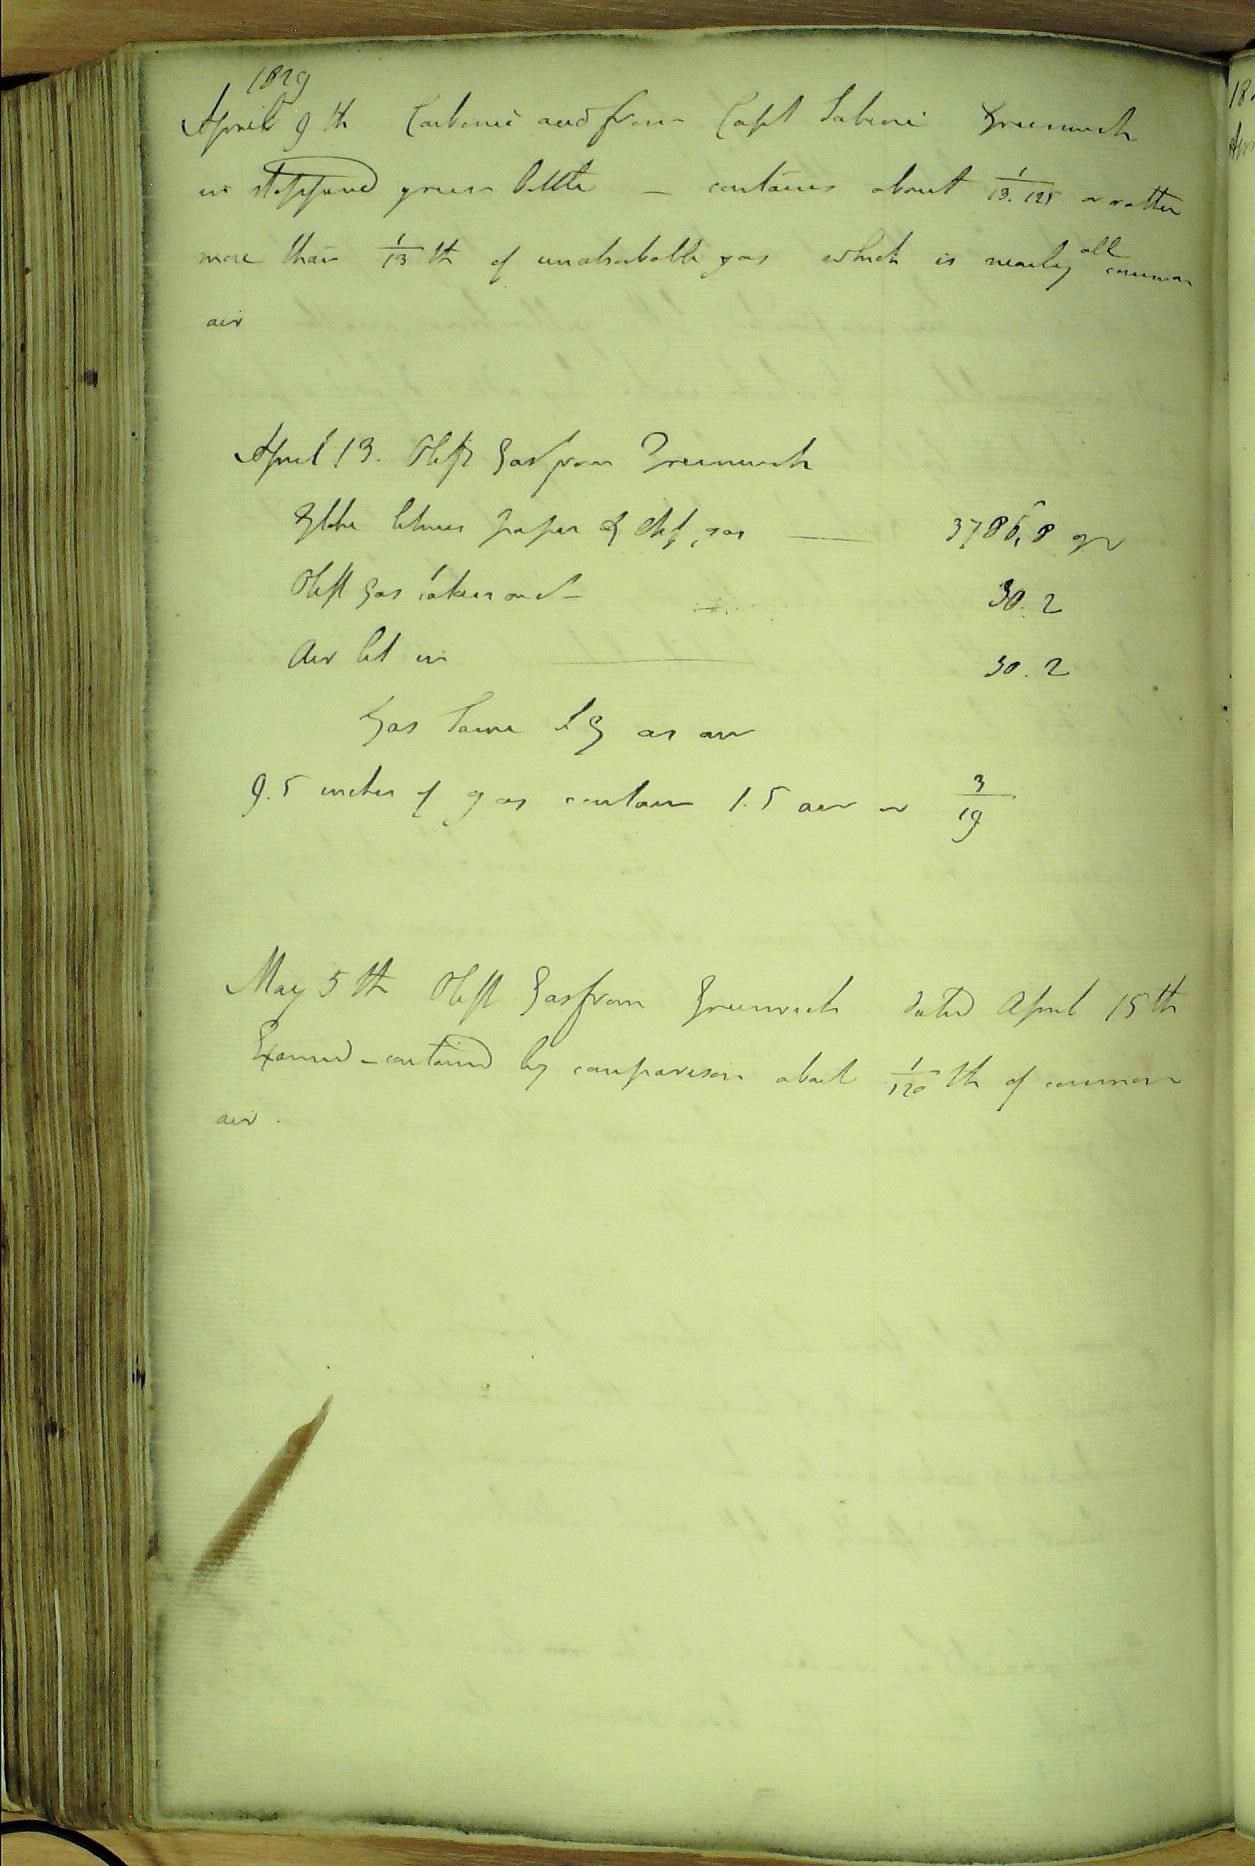 1829
April 9th Carbonic acid from Capt Sabine Greenwich
in stoppered green bottle — contains about 1/13.125 or rather
more than 1/13 th of unabsorbable gas which is nearly all common
air
April 13. Olef Gas from Greenwich
Globe litmus paper & Olef gas — 3786,8 gr
Oleft Gas taken out 30.2
Air let in — 30.2
Gas same S G as air
9.5 inches of gas contain 1.5 air or 3/19
May 5th Oleft Gas from Greenwich dated April 15th
Examd - contained by comparison about 1/120 th of common
air.
18